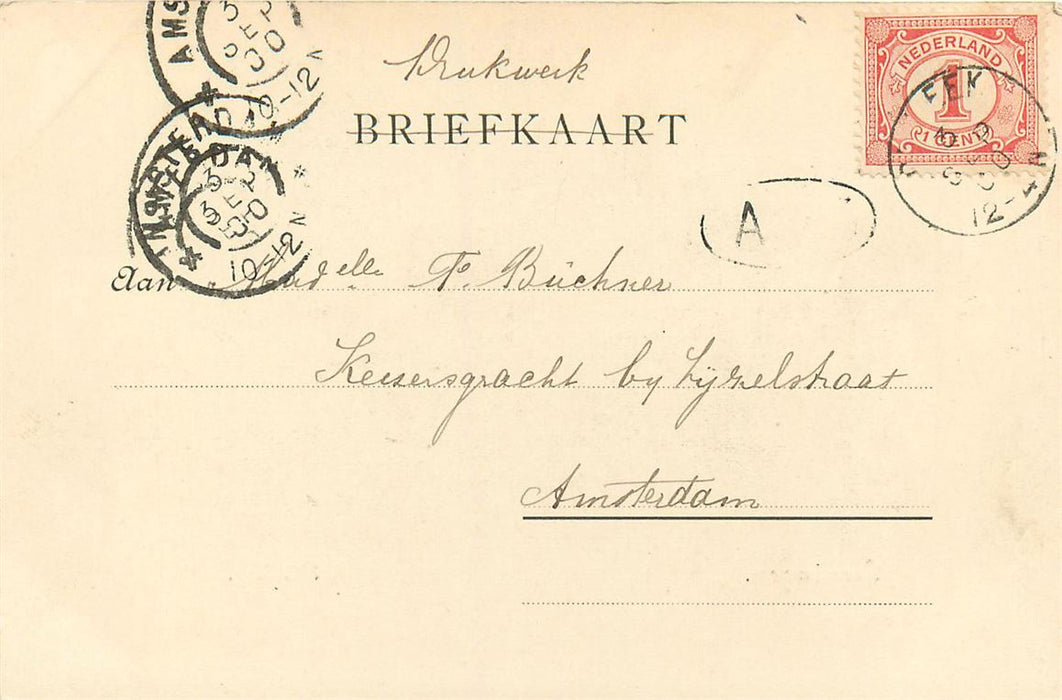 Drukwerk
BRIEFKAART
NEDERLAND
1
1 CENT
EEK
3 SEP
00
12-4 N
AMS
3 SEP
00
10-12 N
AMSTERDAM
3 SEP
00
10-12 N
A
Aan Madelle. F. Büchner
Keisersgracht by Lijzelstraat
Amsterdam